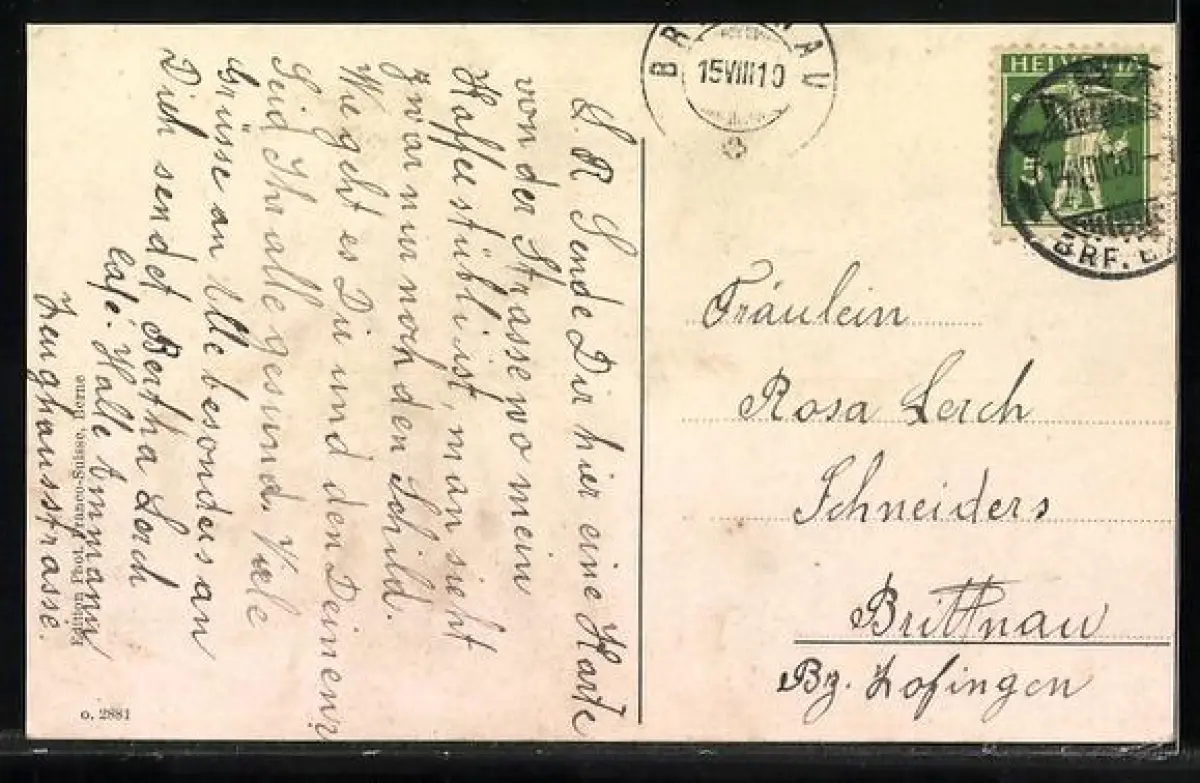 L. R. Sende Dir hier eine Karte
von der Strasse wo mein
Kaffeestübli ist, man sieht
zwar nur noch den Schild.
Wie geht es Dir und den Deinen?
Seid Ihr alle gesund. Viele
Grüsse an Alle besonders an
Dich sendet Bertha Lerch
Café. Halle Ammann
Zeughausstrasse.
Edition Phot. Franco-Suisse, Berne
o. 2881
BRITTNAU
15VIII10
HELVETIA
5
BRF.
Fräulein
Rosa Lerch
Schneiders
Brittnau
Bz. Zofingen